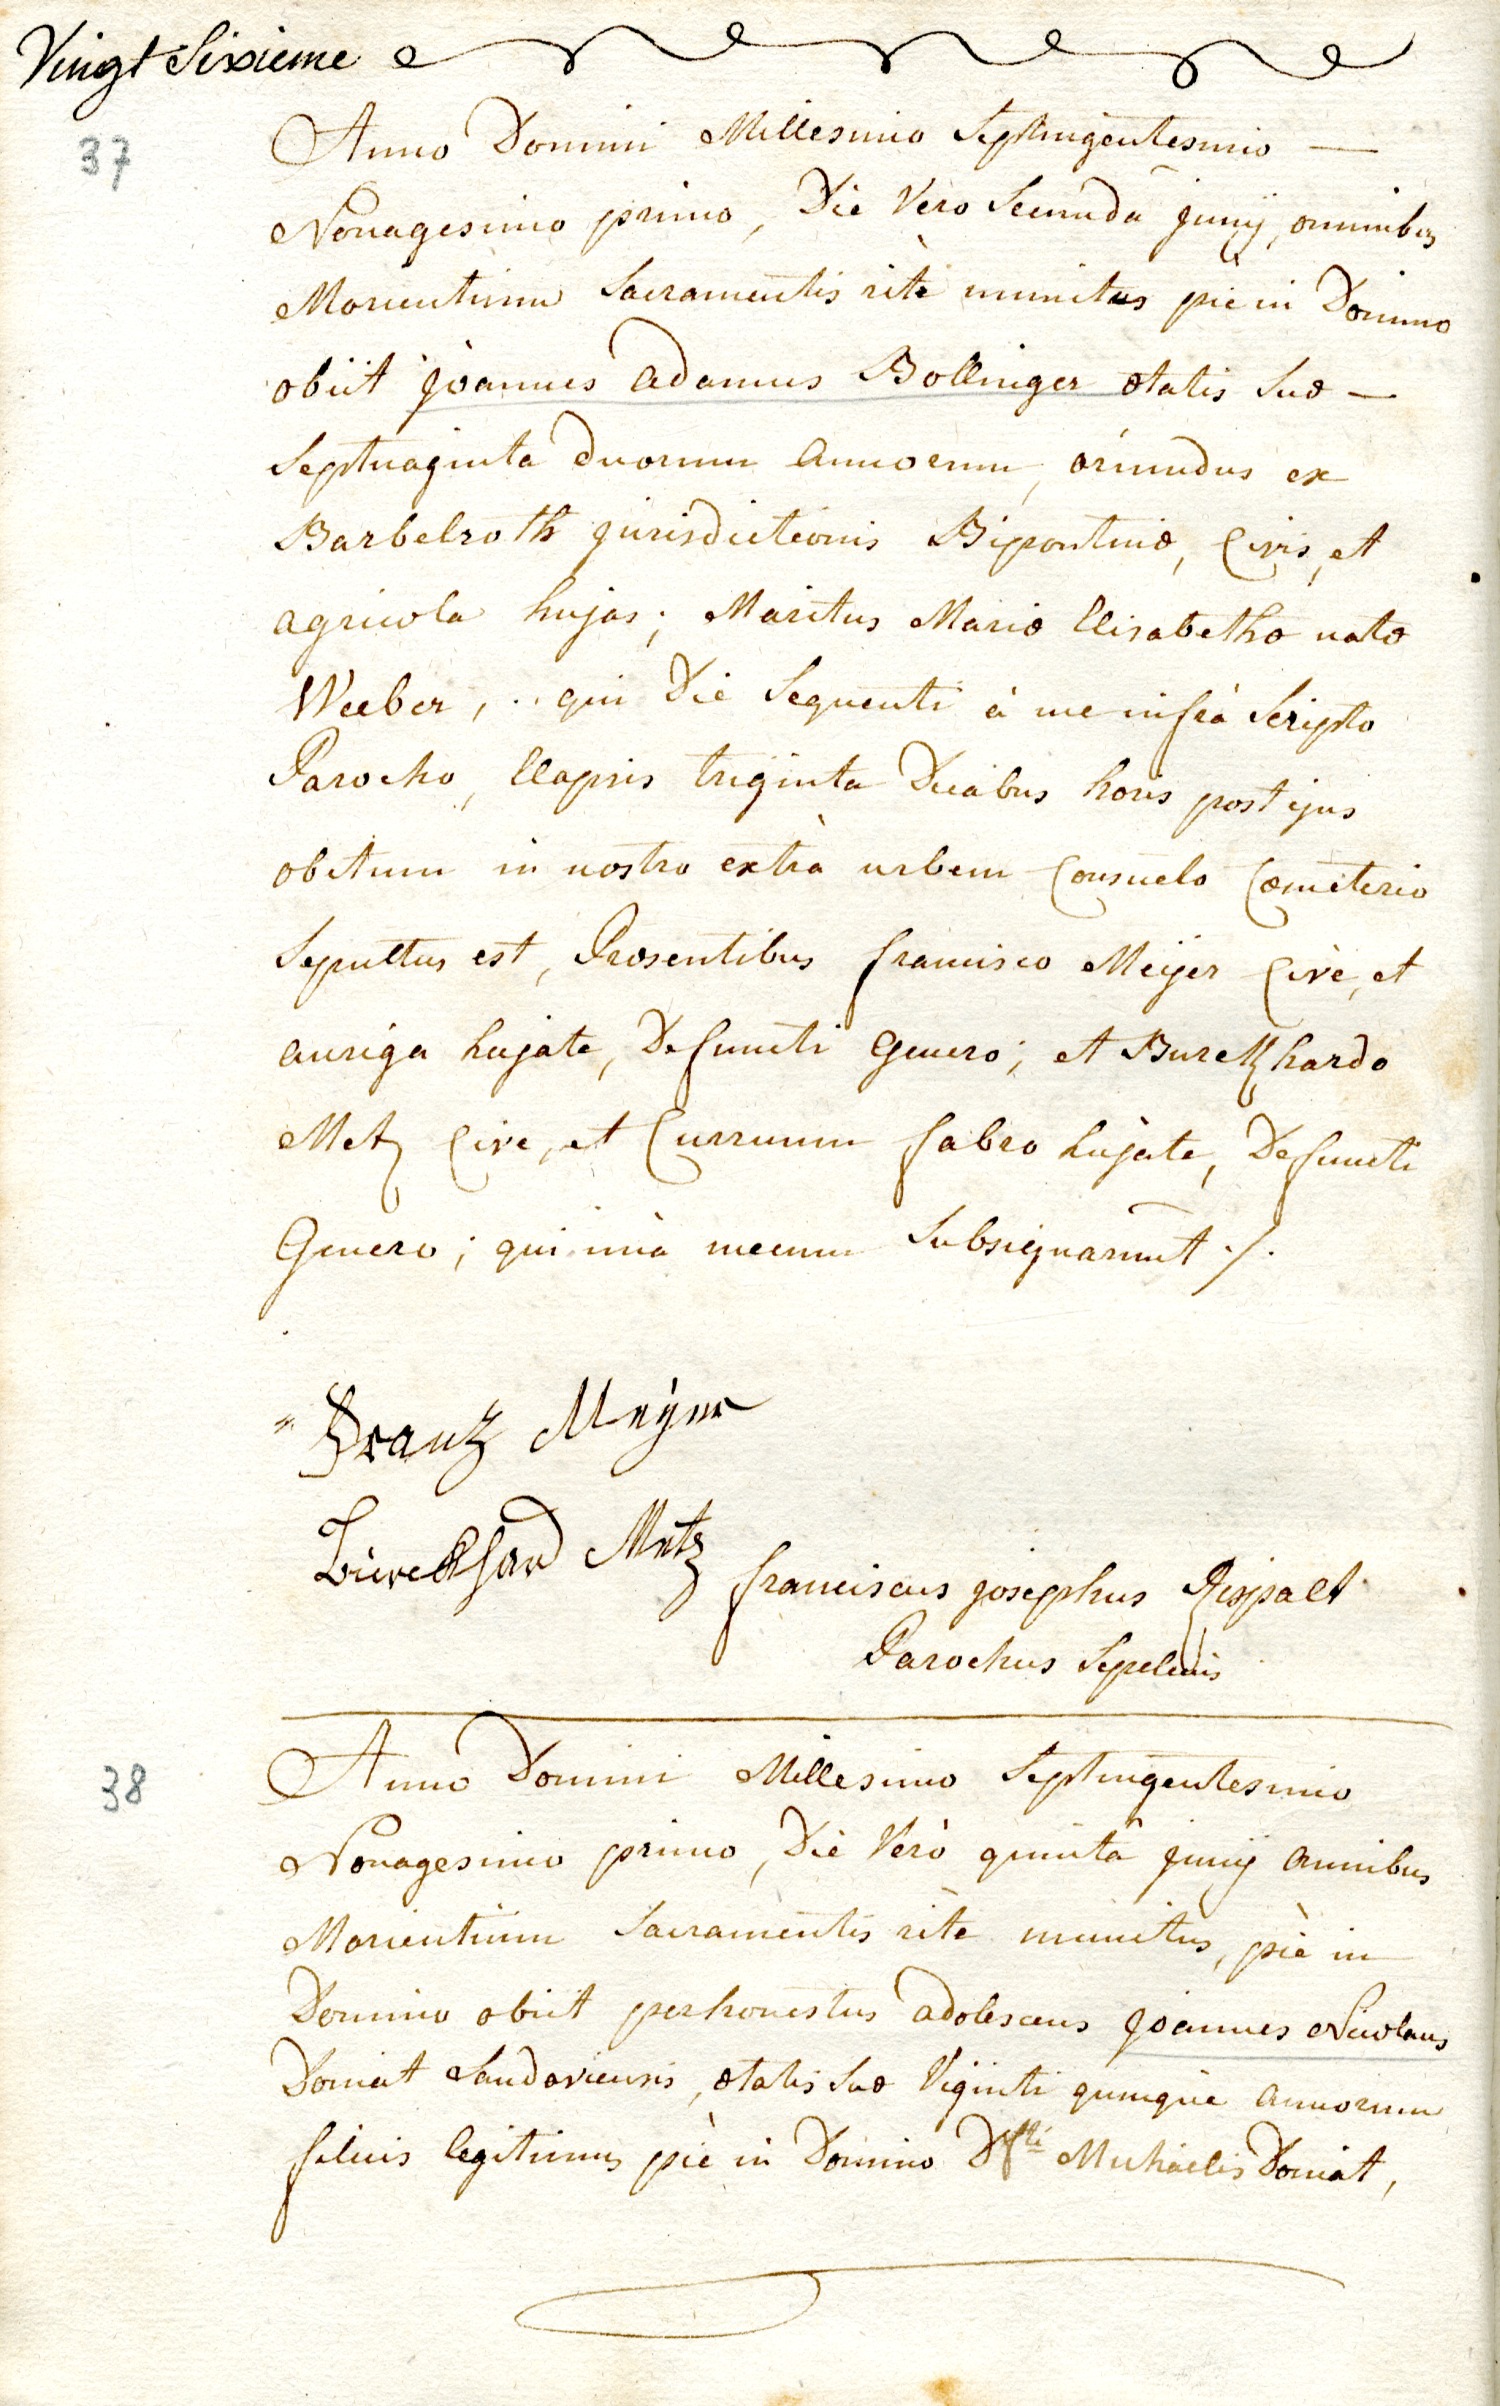 Vingt Sixieme
37
Anno Domini Millesimo Septingentesimo —
Nonagesimo primo, Die Vero Secunda junij, omnibus
Morientium Sacramentis ritè munitus piè in Domino
obiit joannes adamus Bollinger ætatis suæ —
Septuaginta duorum annorum, oriundus ex
Barbelroth jurisdictionis Bipontinæ, Civis, et
agricola hujas; Maritus Mariæ Elisabethæ natæ
Weeber, .. qui Die Sequenti à me infrà Scripto
Parocho, Elapsis triginta Duabus horis post ejus
obitum in nostro extrà urbem Consueto Cœmeterio
Sepultus est, Præsentibus francisco Meÿer Cive, et
auriga hujate, Defuncti Genero; et Burckhardo
Metz Cive, et Curruum fabro hujate, Defuncti
Genero; qui unà mecum Subsignarunt ./.
Franz Meÿer
Burckhard Metz
franciscus josephus Rispalt
Parochus Sepeliens
38
Anno Domini Millesimo Septingentesimo
Nonagesimo primo, Die Verò quintâ junij omnibus
Morientium Sacramentis ritè munitus, piè in
Domino obiit perhonestus adolescens joannes Nicolaus
Doniat Landaviensis, ætatis suæ Viginti quinque annorum
filius legitimus piè in Domino Dfti Michaelis Doniat,